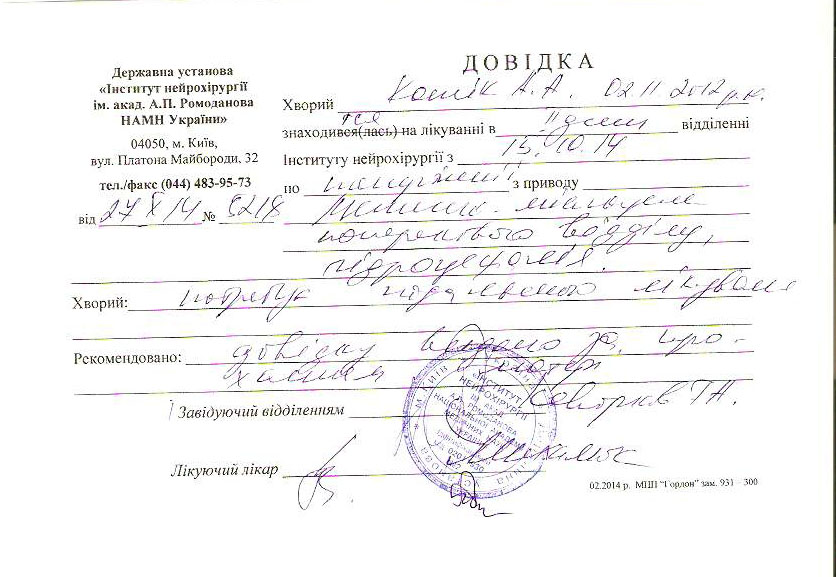 Державна установа
«Інститут нейрохірургії
ім. акад. А.П. Ромоданова
НАМН України»
04050, м. Київ,
вул. Платона Майбороди, 32
тел./факс (044) 483-95-73
від 27 X 14 № 5218
ДОВІДКА
Хворий А.А. 02.11.2012 р.н.
знаходився(лась) на лікуванні в відділенні
тся
Інституту нейрохірургії з 15.10.14
по теперішній з приводу
поперекового відділу,
гідроцефалія.
Хворий: потребує подальшого лікування
Рекомендовано: довідку видано за
Завідуючий відділенням
Лікуючий лікар
ІНСТИТУТ
НЕЙРОХІРУРГІЇ
02.2014 р. МПП "Гордон" зам. 931 – 300